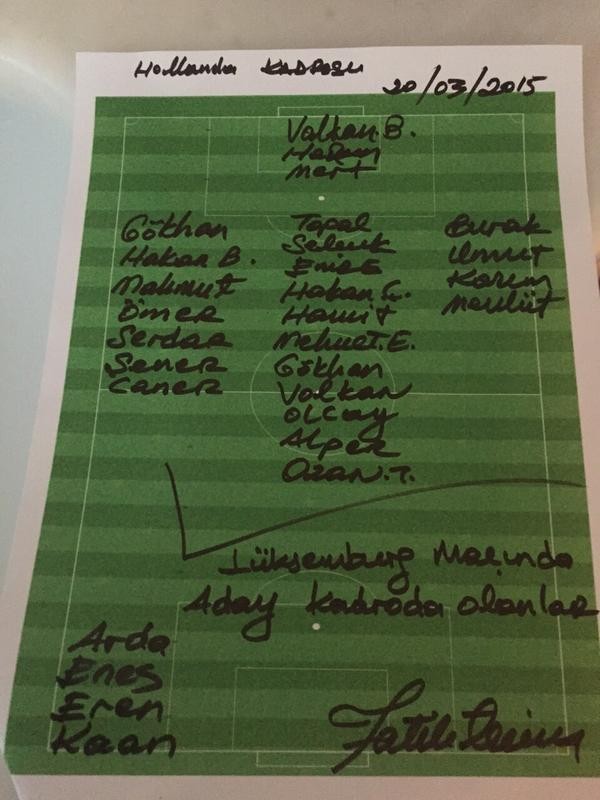 Hollanda KADROSU
20/03/2015
Volkan B.
Harun
Mert
Gökhan
Hakan B.
Mahmut
Ömer
Serdar
Şener
Caner
Topal
Selçuk
Emre
Hakan Ç.
Hamit
Mehmet E.
Gökhan
Volkan
Olcay
Alper
Ozan.T.
Burak
Umut
Kazım
Mevlüt
Lüksemburg Maçında
Aday Kadroda olanlar
Arda
Enes
Eren
Kaan
Fatih Terim